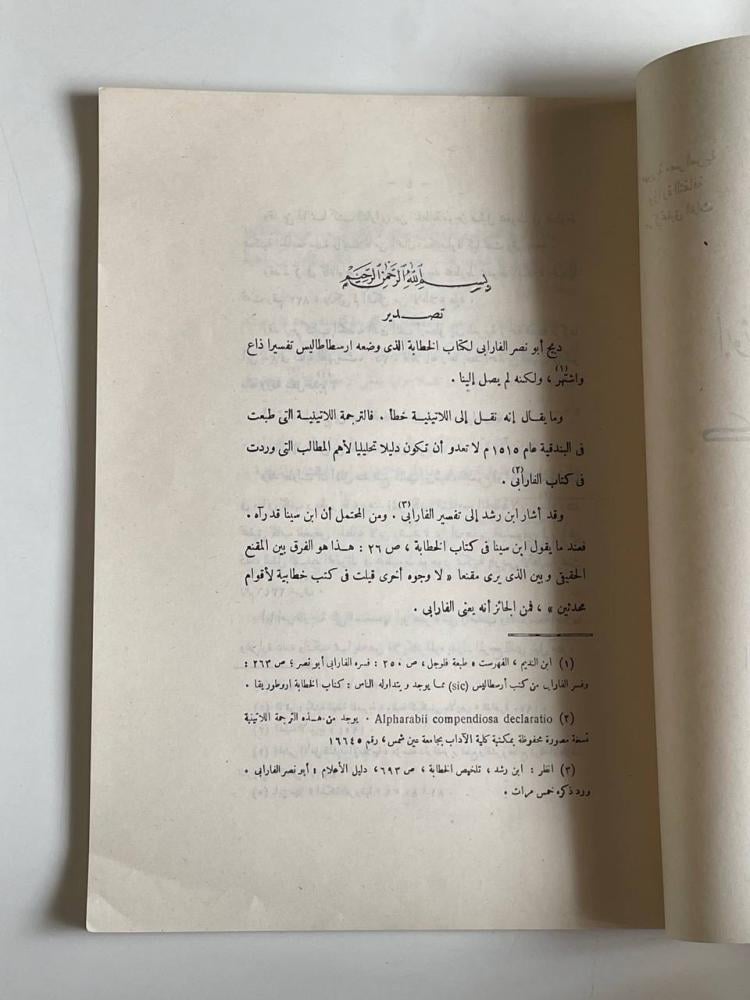 بسم الله الرحمن الرحيم
تصدير
دبج أبو نصر الفارابى لكتاب الخطابة الذى وضعه ارسطاطاليس تفسيرا ذاع
واشتهر (١) ، ولكنه لم يصل إلينا .
وما يقال إنه نقل إلى اللاتينية خطأ . فالترجمة اللاتينية التى طبعت
فى البندقية عام ١٥١٥ م لا تعدو أن تكون دليلا تحليليا لأهم المطالب التى وردت
فى كتاب الفارابى (٢) .
وقد أشار ابن رشد إلى تفسير الفارابى (٣) . ومن المحتمل أن ابن سينا قد رآه .
فعند ما يقول ابن سينا فى كتاب الخطابة ، ص ٢٦ : هذا هو الفرق بين المقنع
الحقيقى وبين الذى يرى مقنعا « لا وجوه أخرى قيلت فى كتب خطابية لأقوام
محدثين » ، فمن الجائز أنه يعنى الفارابى .
(١) ابن النديم ، الفهرست ، طبعة فلوجل ، ص ٢٥٠ : فسره الفارابى أبو نصر ؛ ص ٢٦٣ :
وفسر الفارابى من كتب أرسطاليس (sic) مما يوجد ويتداوله الناس : كتاب الخطابة اروطوريقا .
(٢) Alpharabii compendiosa declaratio . يوجد من هذه الترجمة اللاتينية
نسخة مصورة محفوظة بمكتبة كلية الآداب بجامعة عين شمس ، رقم ١٦٦٤٥
(٣) انظر : ابن رشد ، تلخيص الخطابة ، ص ٦٩٣ ، دليل الأعلام : أبو نصر الفارابى .
ورد ذكره خمس مرات .